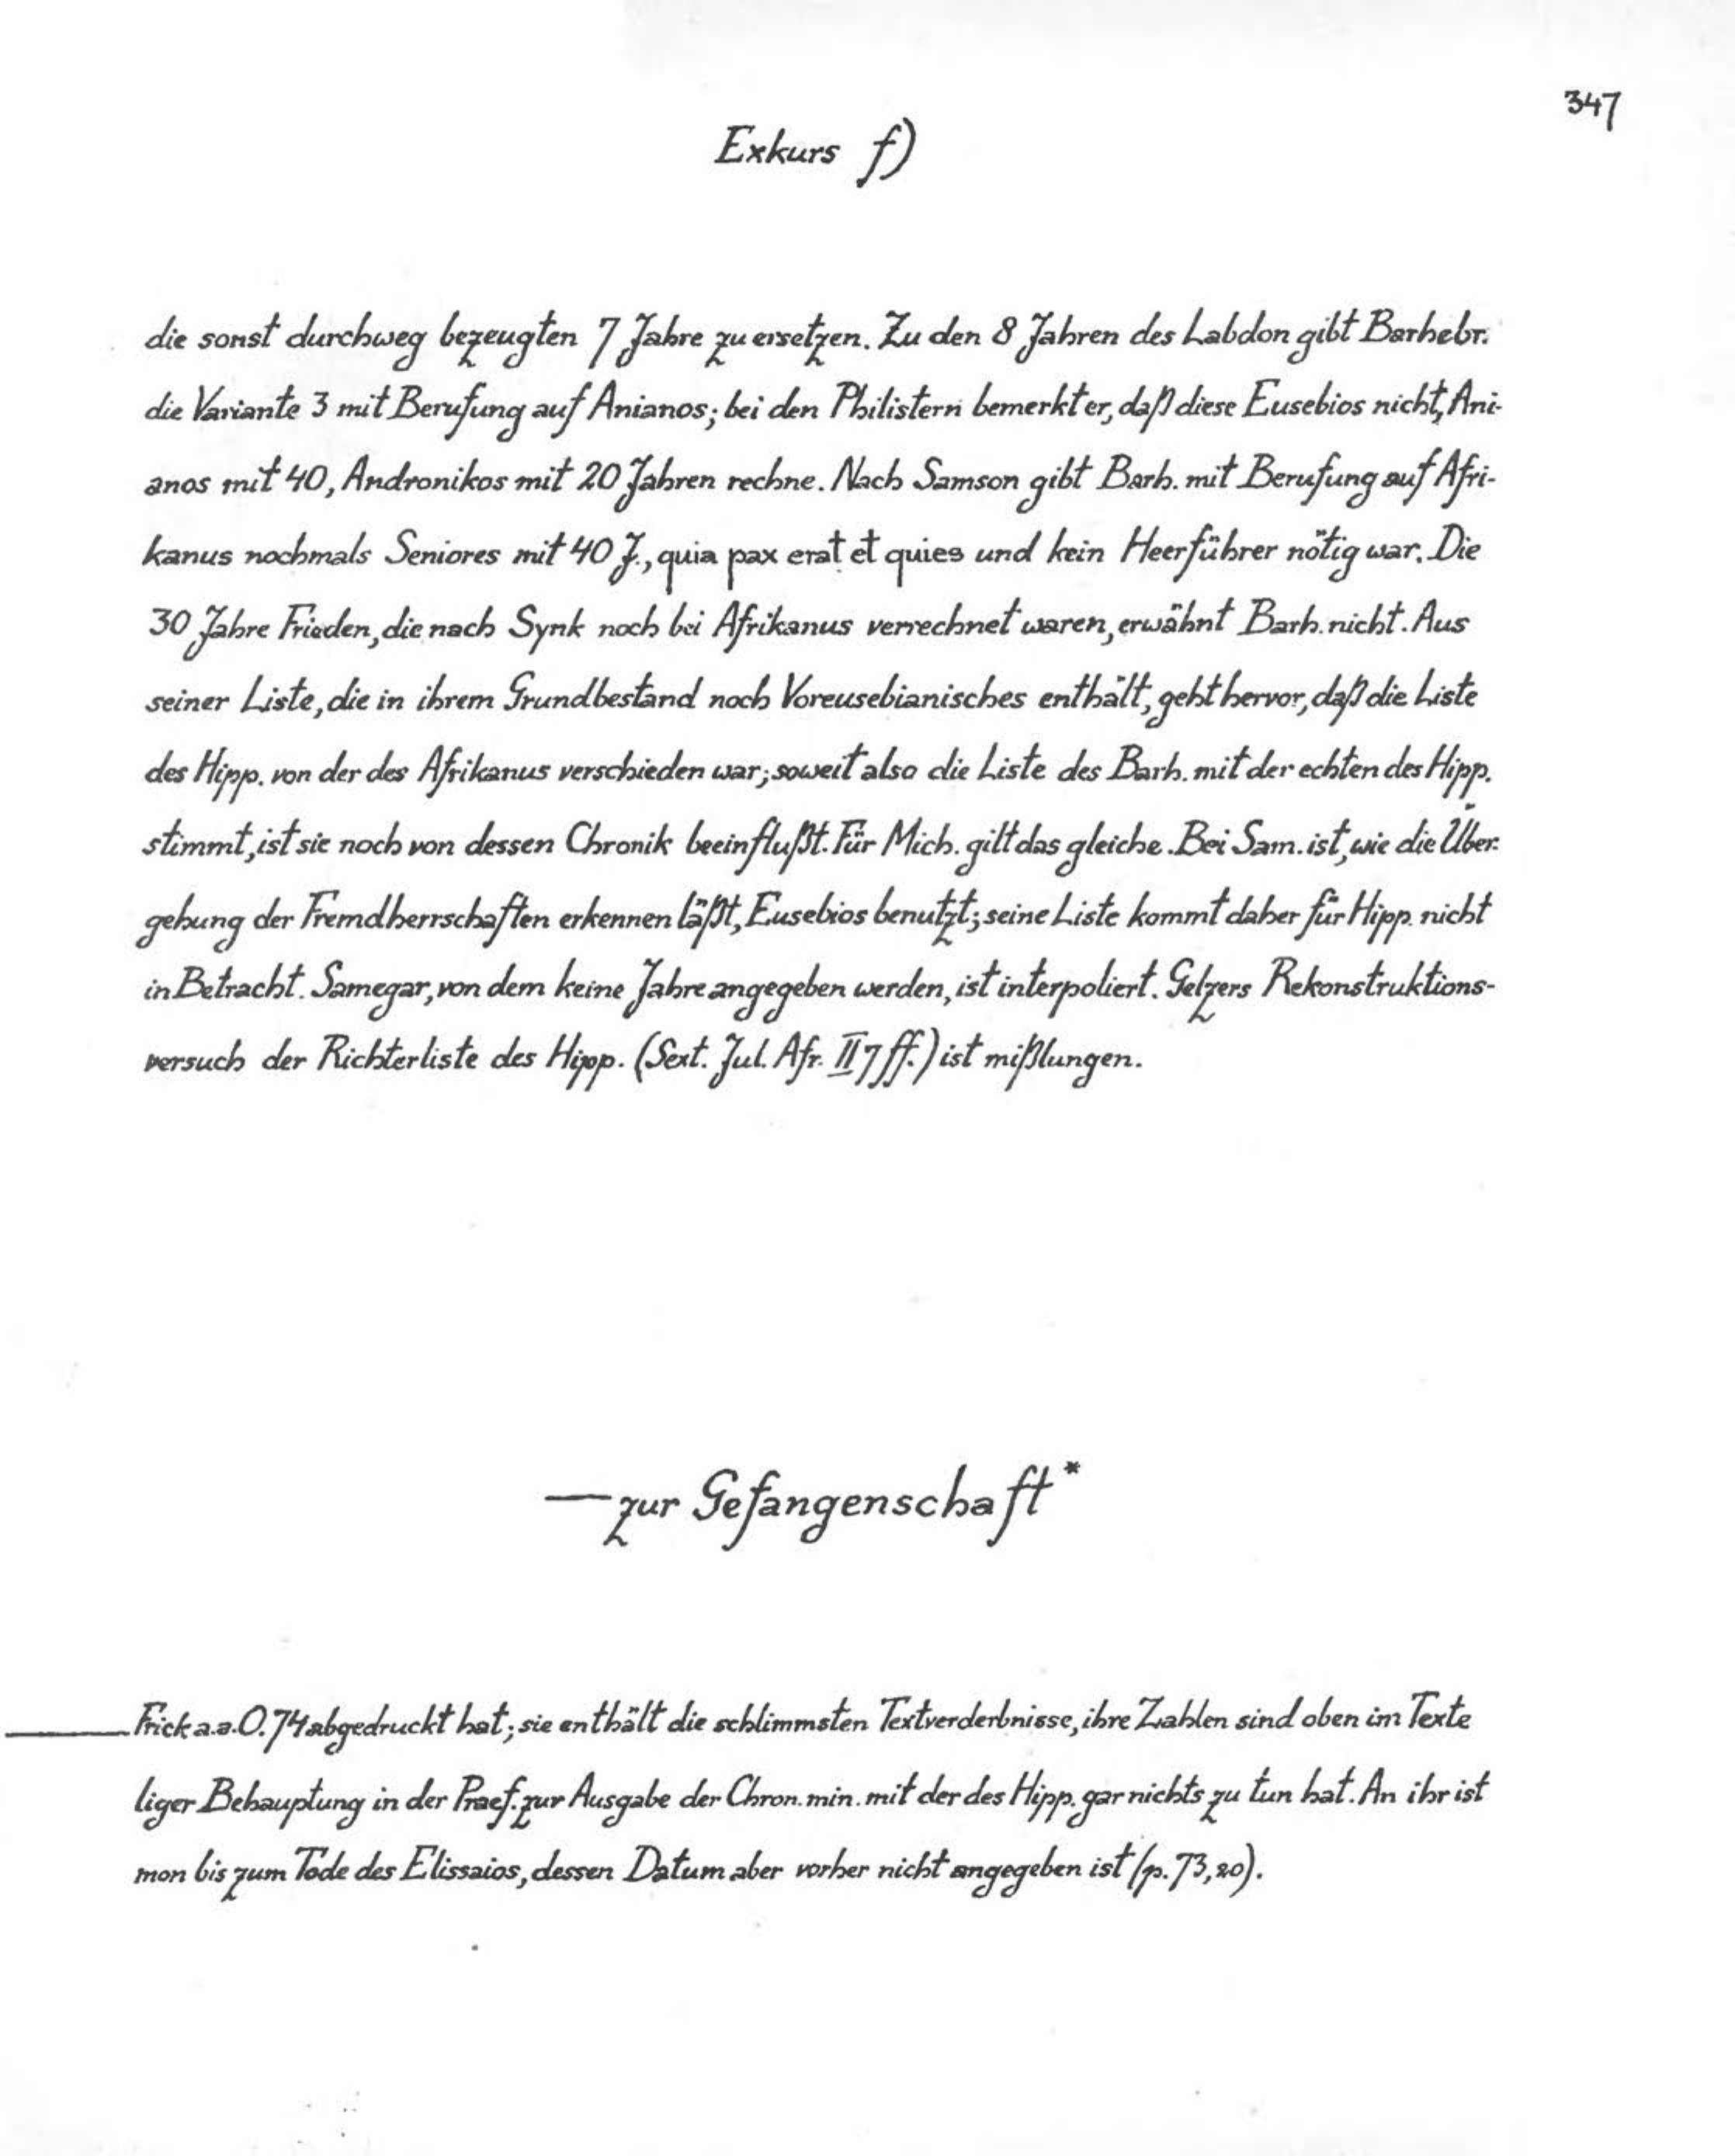 347
Exkurs f)
die sonst durchweg bezeugten 7 Jahre zu ersetzen. Zu den 8 Jahren des Labdon gibt Barhebr.
die Variante 3 mit Berufung auf Anianos; bei den Philistern bemerkt er, daß diese Eusebios nicht, Ani-
anos mit 40, Andronikos mit 20 Jahren rechne. Nach Samson gibt Barh. mit Berufung auf Afri-
kanus nochmals Seniores mit 40 J., quia pax erat et quies und kein Heerführer nötig war. Die
30 Jahre Frieden, die nach Synk noch bei Afrikanus verrechnet waren, erwähnt Barh. nicht. Aus
seiner Liste, die in ihrem Grundbestand noch Voreusebianisches enthält, geht hervor, daß die Liste
des Hipp. von der des Afrikanus verschieden war; soweit also die Liste des Barh. mit der echten des Hipp.
stimmt, ist sie noch von dessen Chronik beeinflußt. Für Mich. gilt das gleiche. Bei Sam. ist, wie die Über-
gehung der Fremdherrschaften erkennen läßt, Eusebios benutzt; seine Liste kommt daher für Hipp. nicht
in Betracht. Samegar, von dem keine Jahre angegeben werden, ist interpoliert. Gelzers Rekonstruktions-
versuch der Richterliste des Hipp. (Sext. Jul. Afr. II 7 ff.) ist mißlungen.
— zur Gefangenschaft*
Frick a.a.O. 74 abgedruckt hat; sie enthält die schlimmsten Textverderbnisse, ihre Zahlen sind oben im Texte
liger Behauptung in der Praef. zur Ausgabe der Chron. min. mit der des Hipp. gar nichts zu tun hat. An ihr ist
mon bis zum Tode des Elissaios, dessen Datum aber vorher nicht angegeben ist (p. 73,20).